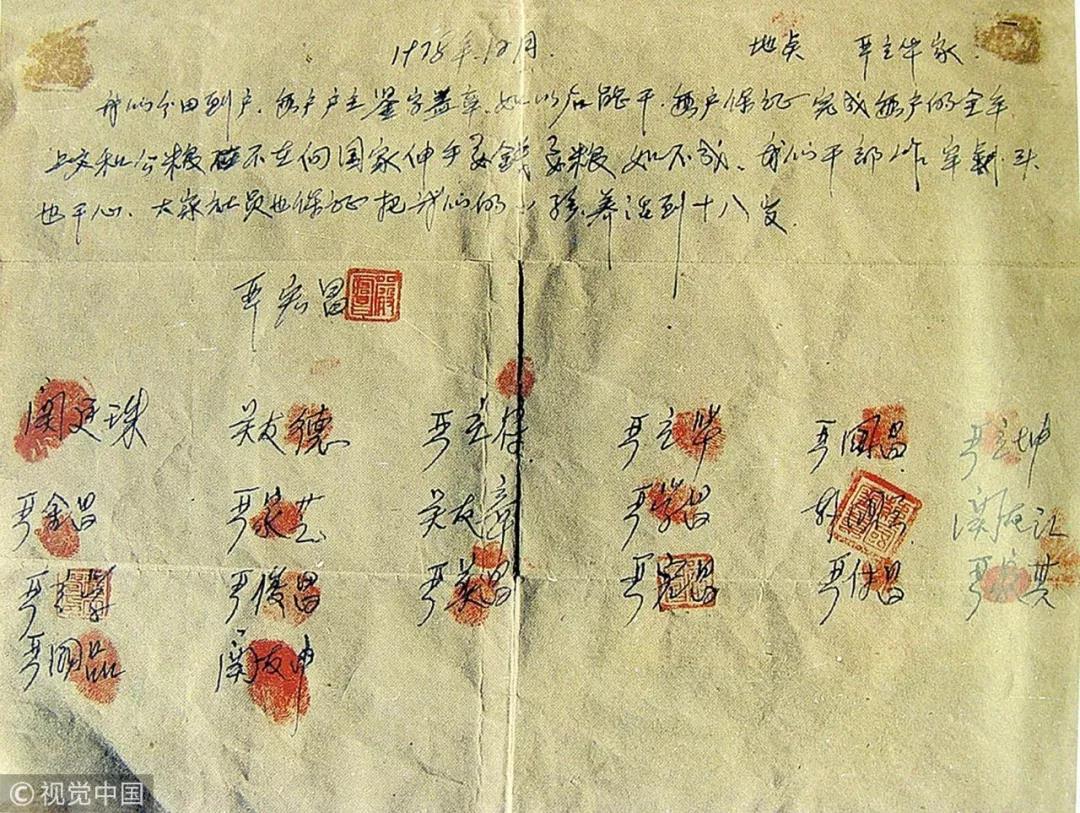 1978年12月. 地点 严立华家.
我们分田到户,每户户主鉴字盖章,如以后能干,每户保证完成每户的全年
上交和公粮不在向国家伸手要钱要粮如不成,我们干部作牢刹头
也干心,大家社员也保证把我们的小孩养活到十八岁.
严宏昌
关廷珠 关友德 严立符 严立华 严国昌 严立坤
严金昌 严家芝 关友章 严学昌 韩国云 关友江
严立学 严俊昌 严美昌 严宏昌 严付昌 严家其
严国品 关友申
© 视觉中国